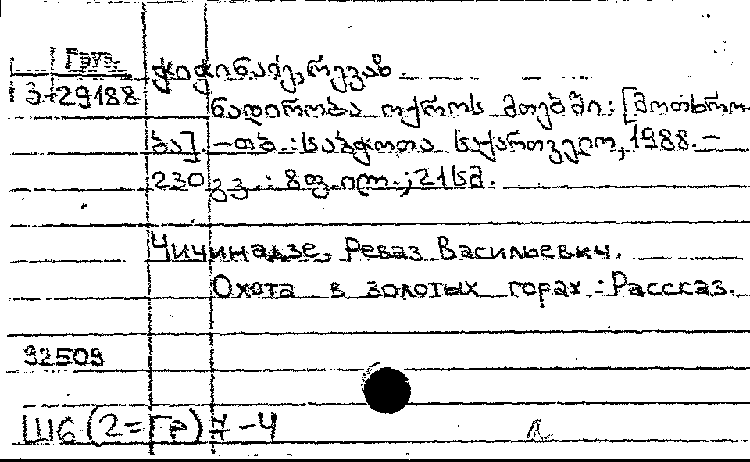 Груз.
3-29188
ჭიჭინაძე, რევაზ
ნადირობა ოქროს მთებში: [მოთხრო-
ბა]. – თბ.: საბჭოთა საქართველო, 1988. –
230 გვ.: 8 ფ. ილ.; 21 სმ.
Чичинадзе, Реваз Васильевич.
Охота в золотых горах: Рассказ.
92509
Ш6(2=Гр)7-4